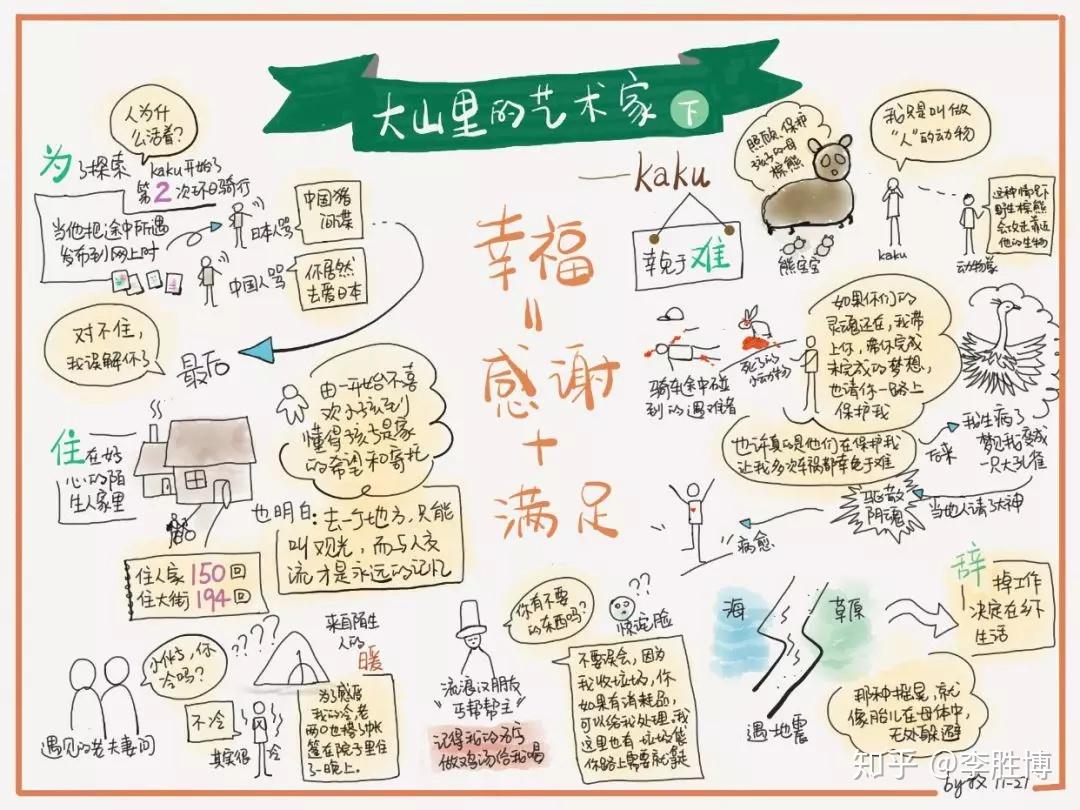 大山里的艺术家 下
——kaku
人为什
么活着？
为了探索
kaku开始了
第2次环日骑行
当他把途中所遇
发布到网上时
日本人骂
中国猪
间谍
中国人骂
你居然
去爱日本
对不住，
我误解你了
最后
住在好
心的陌
生人家里
由一开始不喜
欢小孩到
懂得孩子是家
的希望和寄托
也明白：去一个地方，只能
叫观光，而与人交
流才是永远的记忆
住人家150回
住大街194回
遇见的老夫妻问
小伙子，你
冷吗？
????
不冷
其实很冷
来自陌生
人的
暖
为了感居
我的冷，老
两口也搭了帐
篷在院子里住
了一晚上。
幸福
=
感谢
+
满足
幸免于难
照顾、保护
孩子的母
棕熊
熊宝宝
我只是叫做
“人”的动物
kaku
这种情况下
野生棕熊
会攻击靠近
他的生物
动物学
骑车途中碰
到的遇难者
死了的
小动物
如果你们的
灵魂还在，我带
上你，带你完成
未完成的梦想，
也请你一路上
保护我
也许真的是他们在保护我
让我多次车祸都幸免于难
后来
我生病了
梦见我变成
一只大孔雀
当地人请了大神
驱散
阴魂
病愈
流浪汉朋友
“丐帮帮主”
记得我的名字
做鸡汤给我喝
你有不要
的东西吗？
??
惊讶脸
不要误会，因为
我收垃圾，你
如果有消耗品，
可以给我处理，我
这里也有一
你路上需要就拿走
海
草原
遇地震
辞
掉工作
决定在乡下
生活
那种摇晃，就
像胎儿在母体中，
无处躲避
知乎 @李胜博
11-21